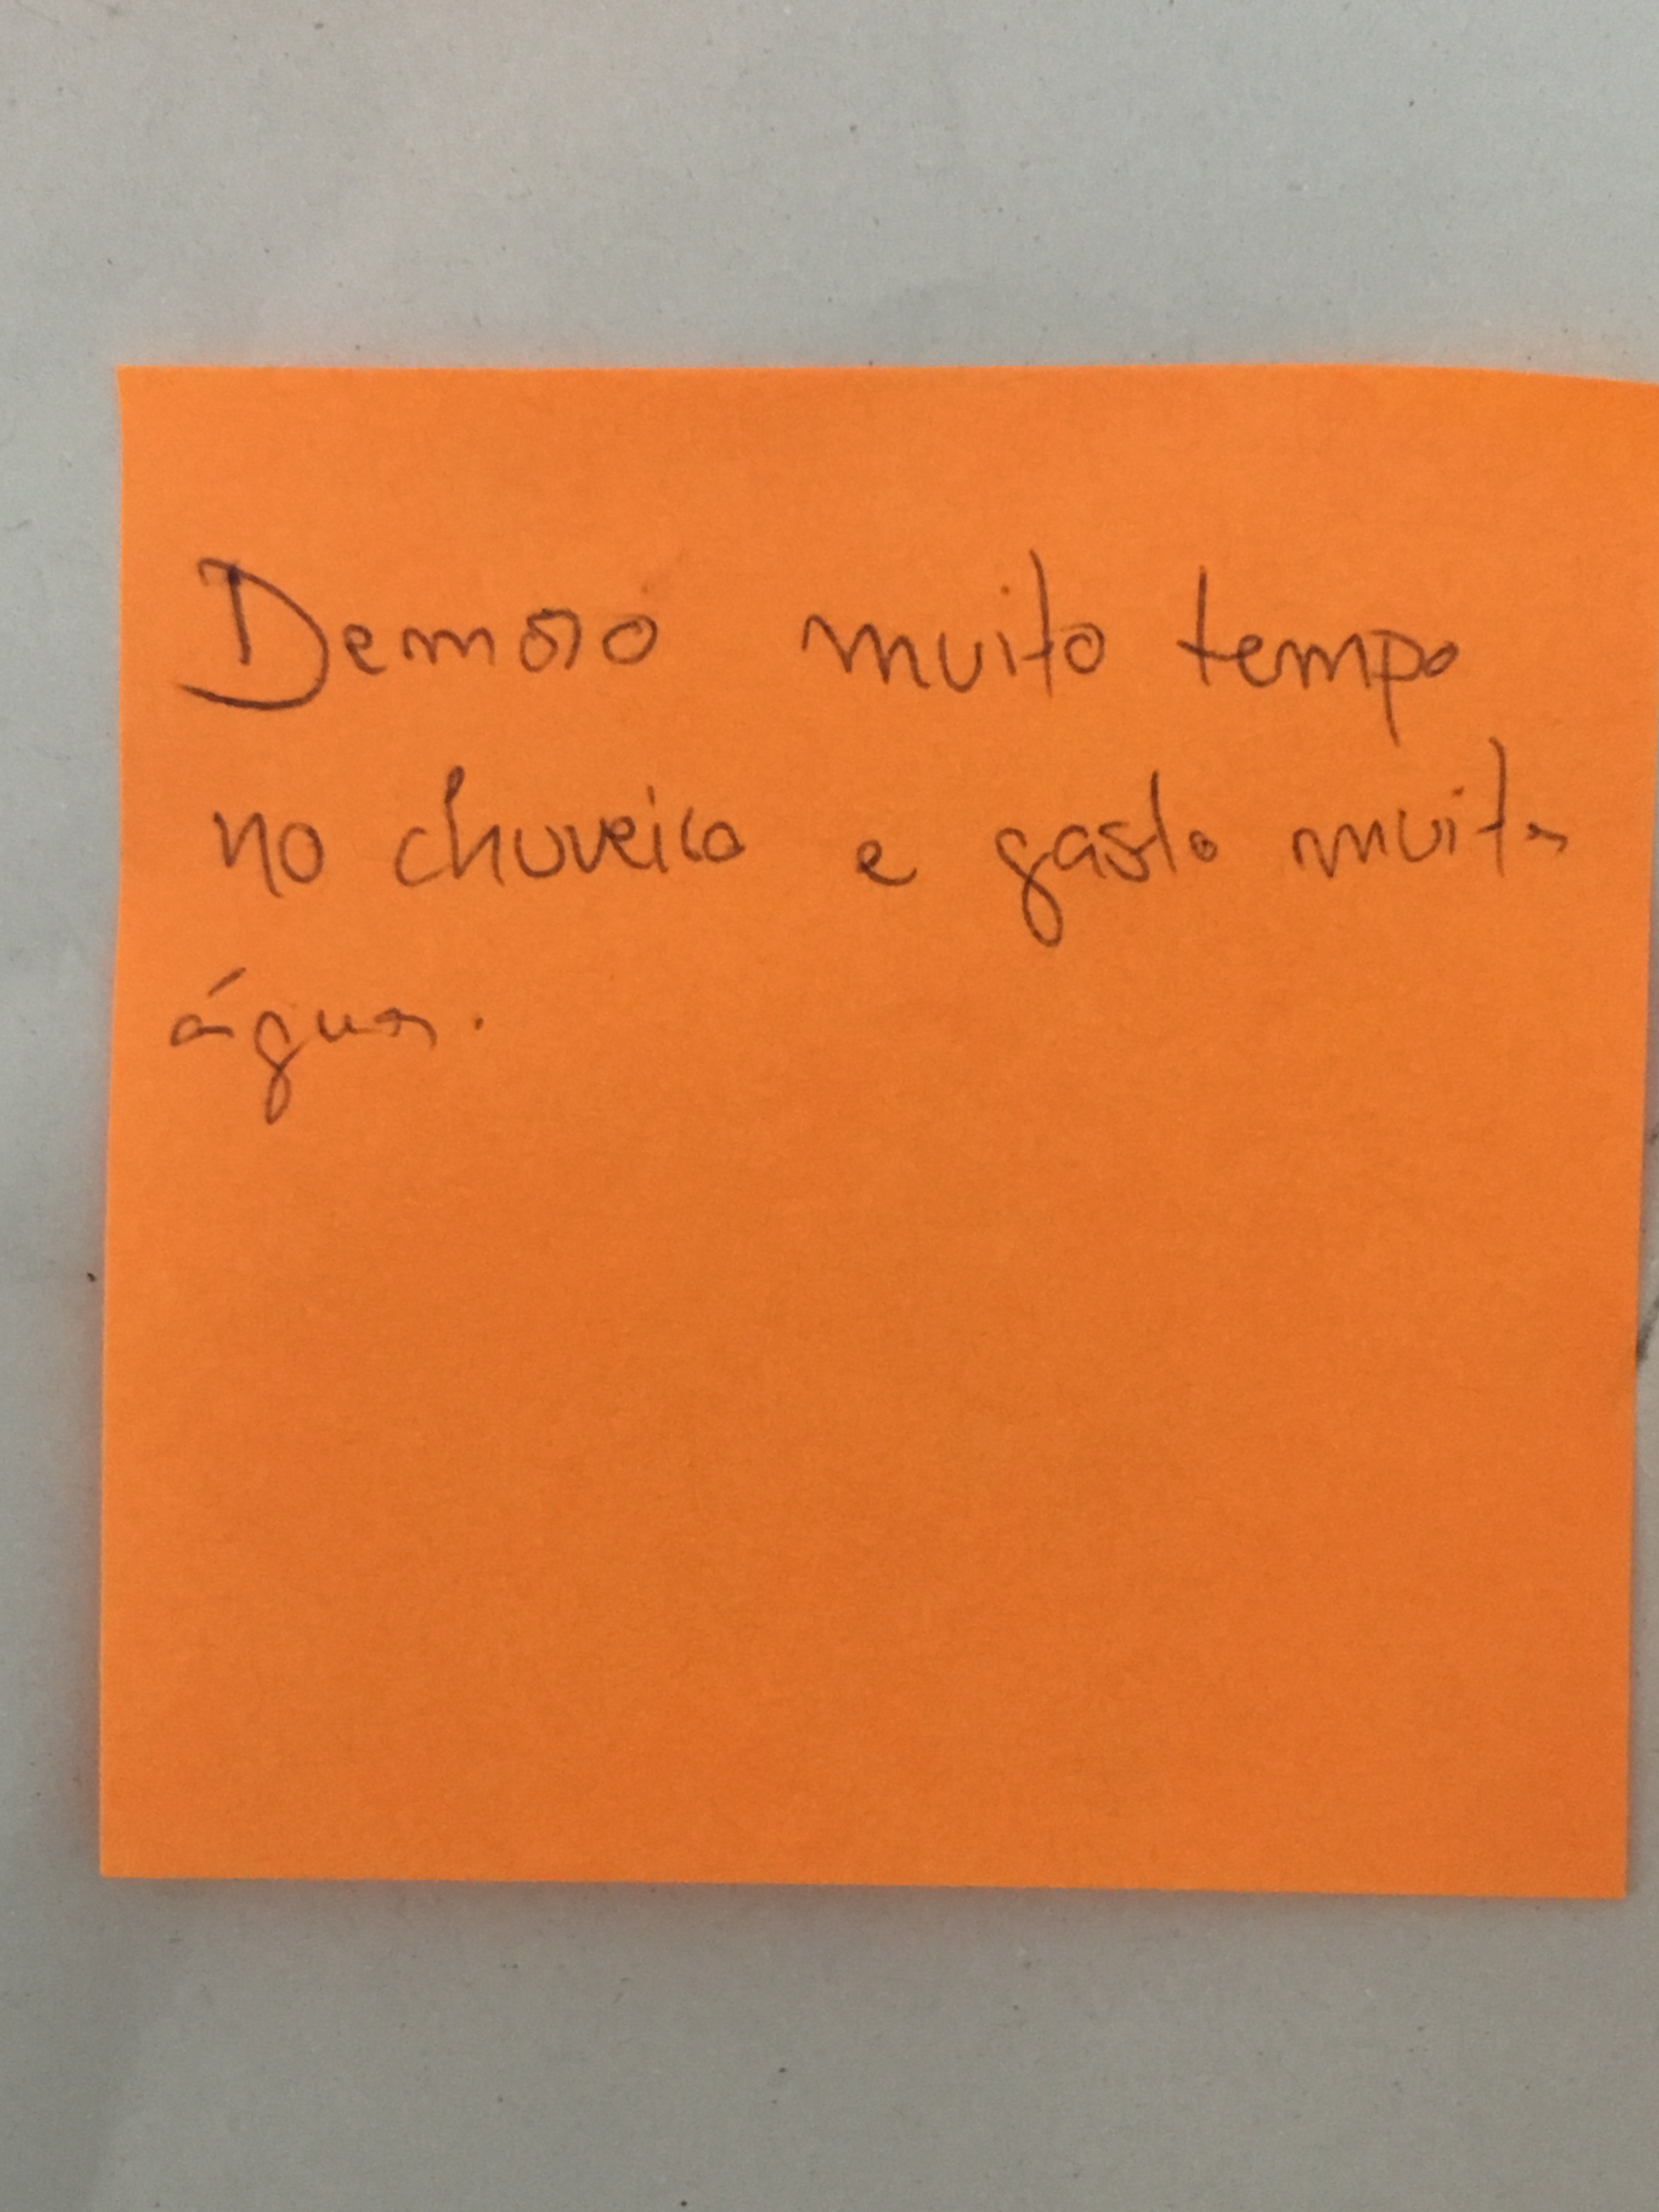 Demoro muito tempo
no chuveiro e gasto muita
água.